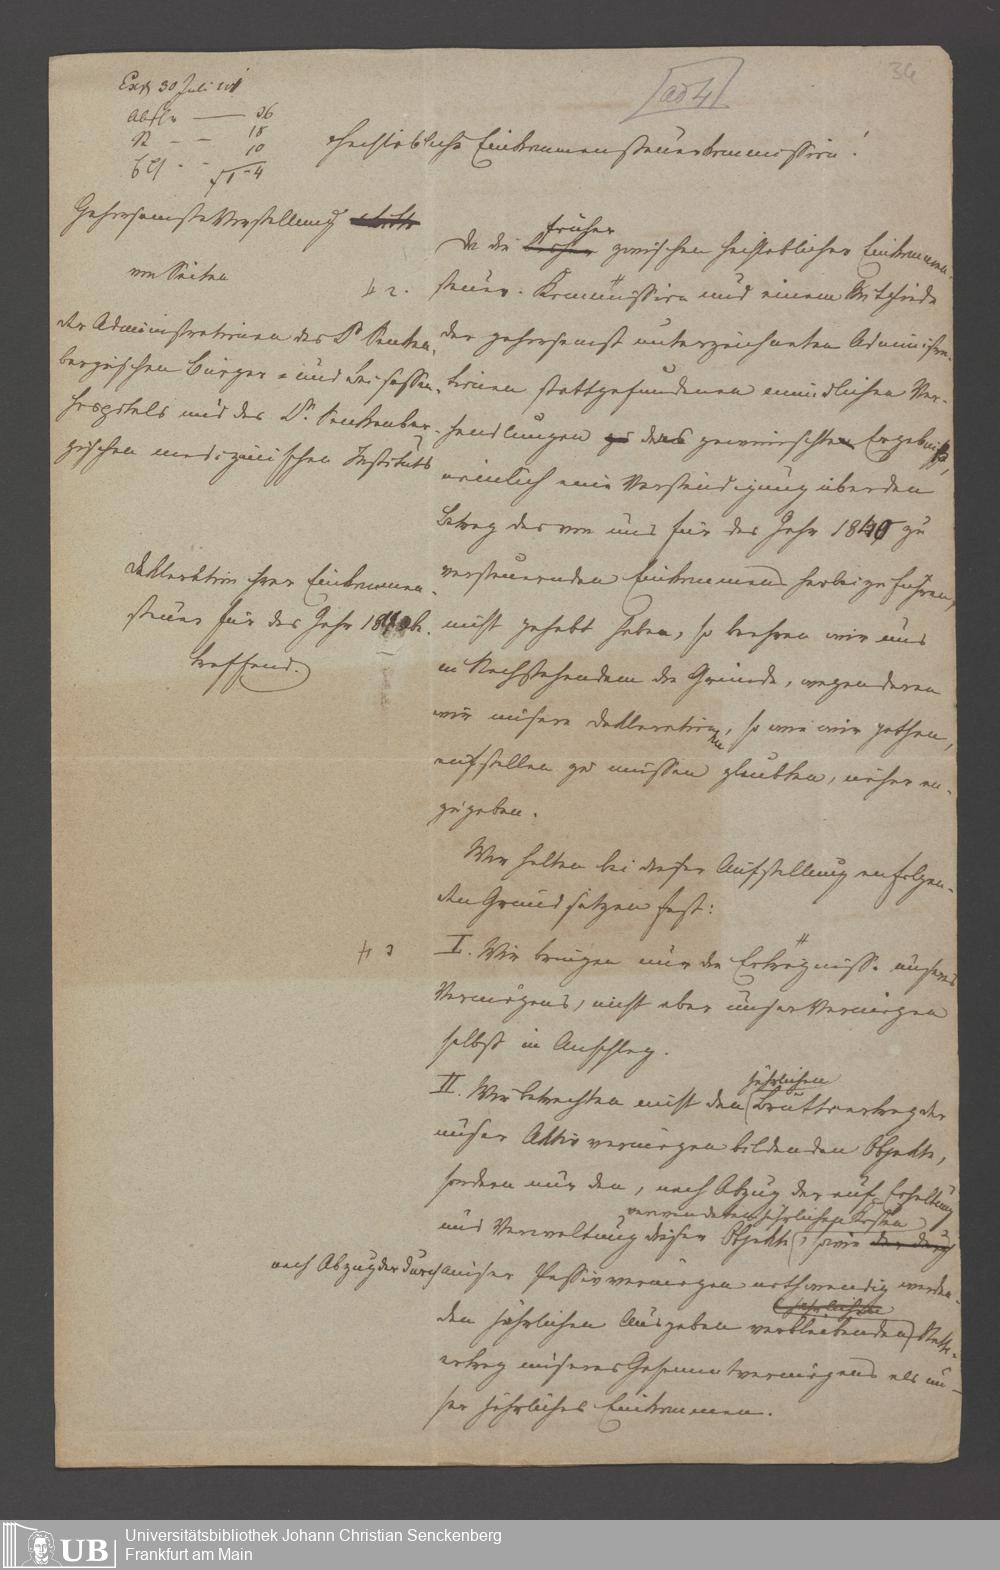 34
[ad 4]
Exp 30 Juli
36
18
10
4
Hochlöbliche Einkommensteuerkommission!
Gehorsamste Vorstellung
von Seiten
der Administration des Dr. Senken-
bergischen Bürger- und Beisassen-
hospitals und des Dr. Senkenber-
gischen medizinischen Instituts
Deklaration ihrer Einkommen-
steuer für das Jahr be-
treffend.
früher
Da die zwischen hochlöblicher Einkommen-
steuer-Kommission und einem Mitgliede
der gehorsamst unterzeichneten Administra-
tionen stattgefundenen mündlichen Ver-
handlungen das gewünschte Ergebniß,
nämlich eine Verständigung über den
Betrag des von uns für das Jahr 1840 zu
versteuernden Einkommens herbeizuführen,
nicht gehabt haben, so beehren wir uns
in Nachstehendem die Gründe, wegen deren
wir unsere Deklaration, so wie wir gethan,
aufstellen zu müssen glaubten, näher an-
zugeben.
Wir halten bei dieser Aufstellung an folgen-
den Grundsätzen fest:
I. Wir bringen nur die Erträgnisse unseres
Vermögens, nicht aber unser Vermögen
selbst in Anschlag.
jährlichen
II. Wir betrachten nicht den Bruttoertrag der
unser Aktivvermögen bildenden Objekte,
sondern nur den, nach Abzug der auf Erhaltung
verwendeten jährlichen Kosten
und Verwaltung dieser Objekte, sowie der durch
nach Abzug der durch unser Passivvermögen nothwendig werden-
jährlichen
den jährlichen Ausgaben verbleibenden Netto-
ertrag unseres Gesammtvermögens als un-
ser jährliches Einkommen.
UB
Universitätsbibliothek Johann Christian Senckenberg
Frankfurt am Main